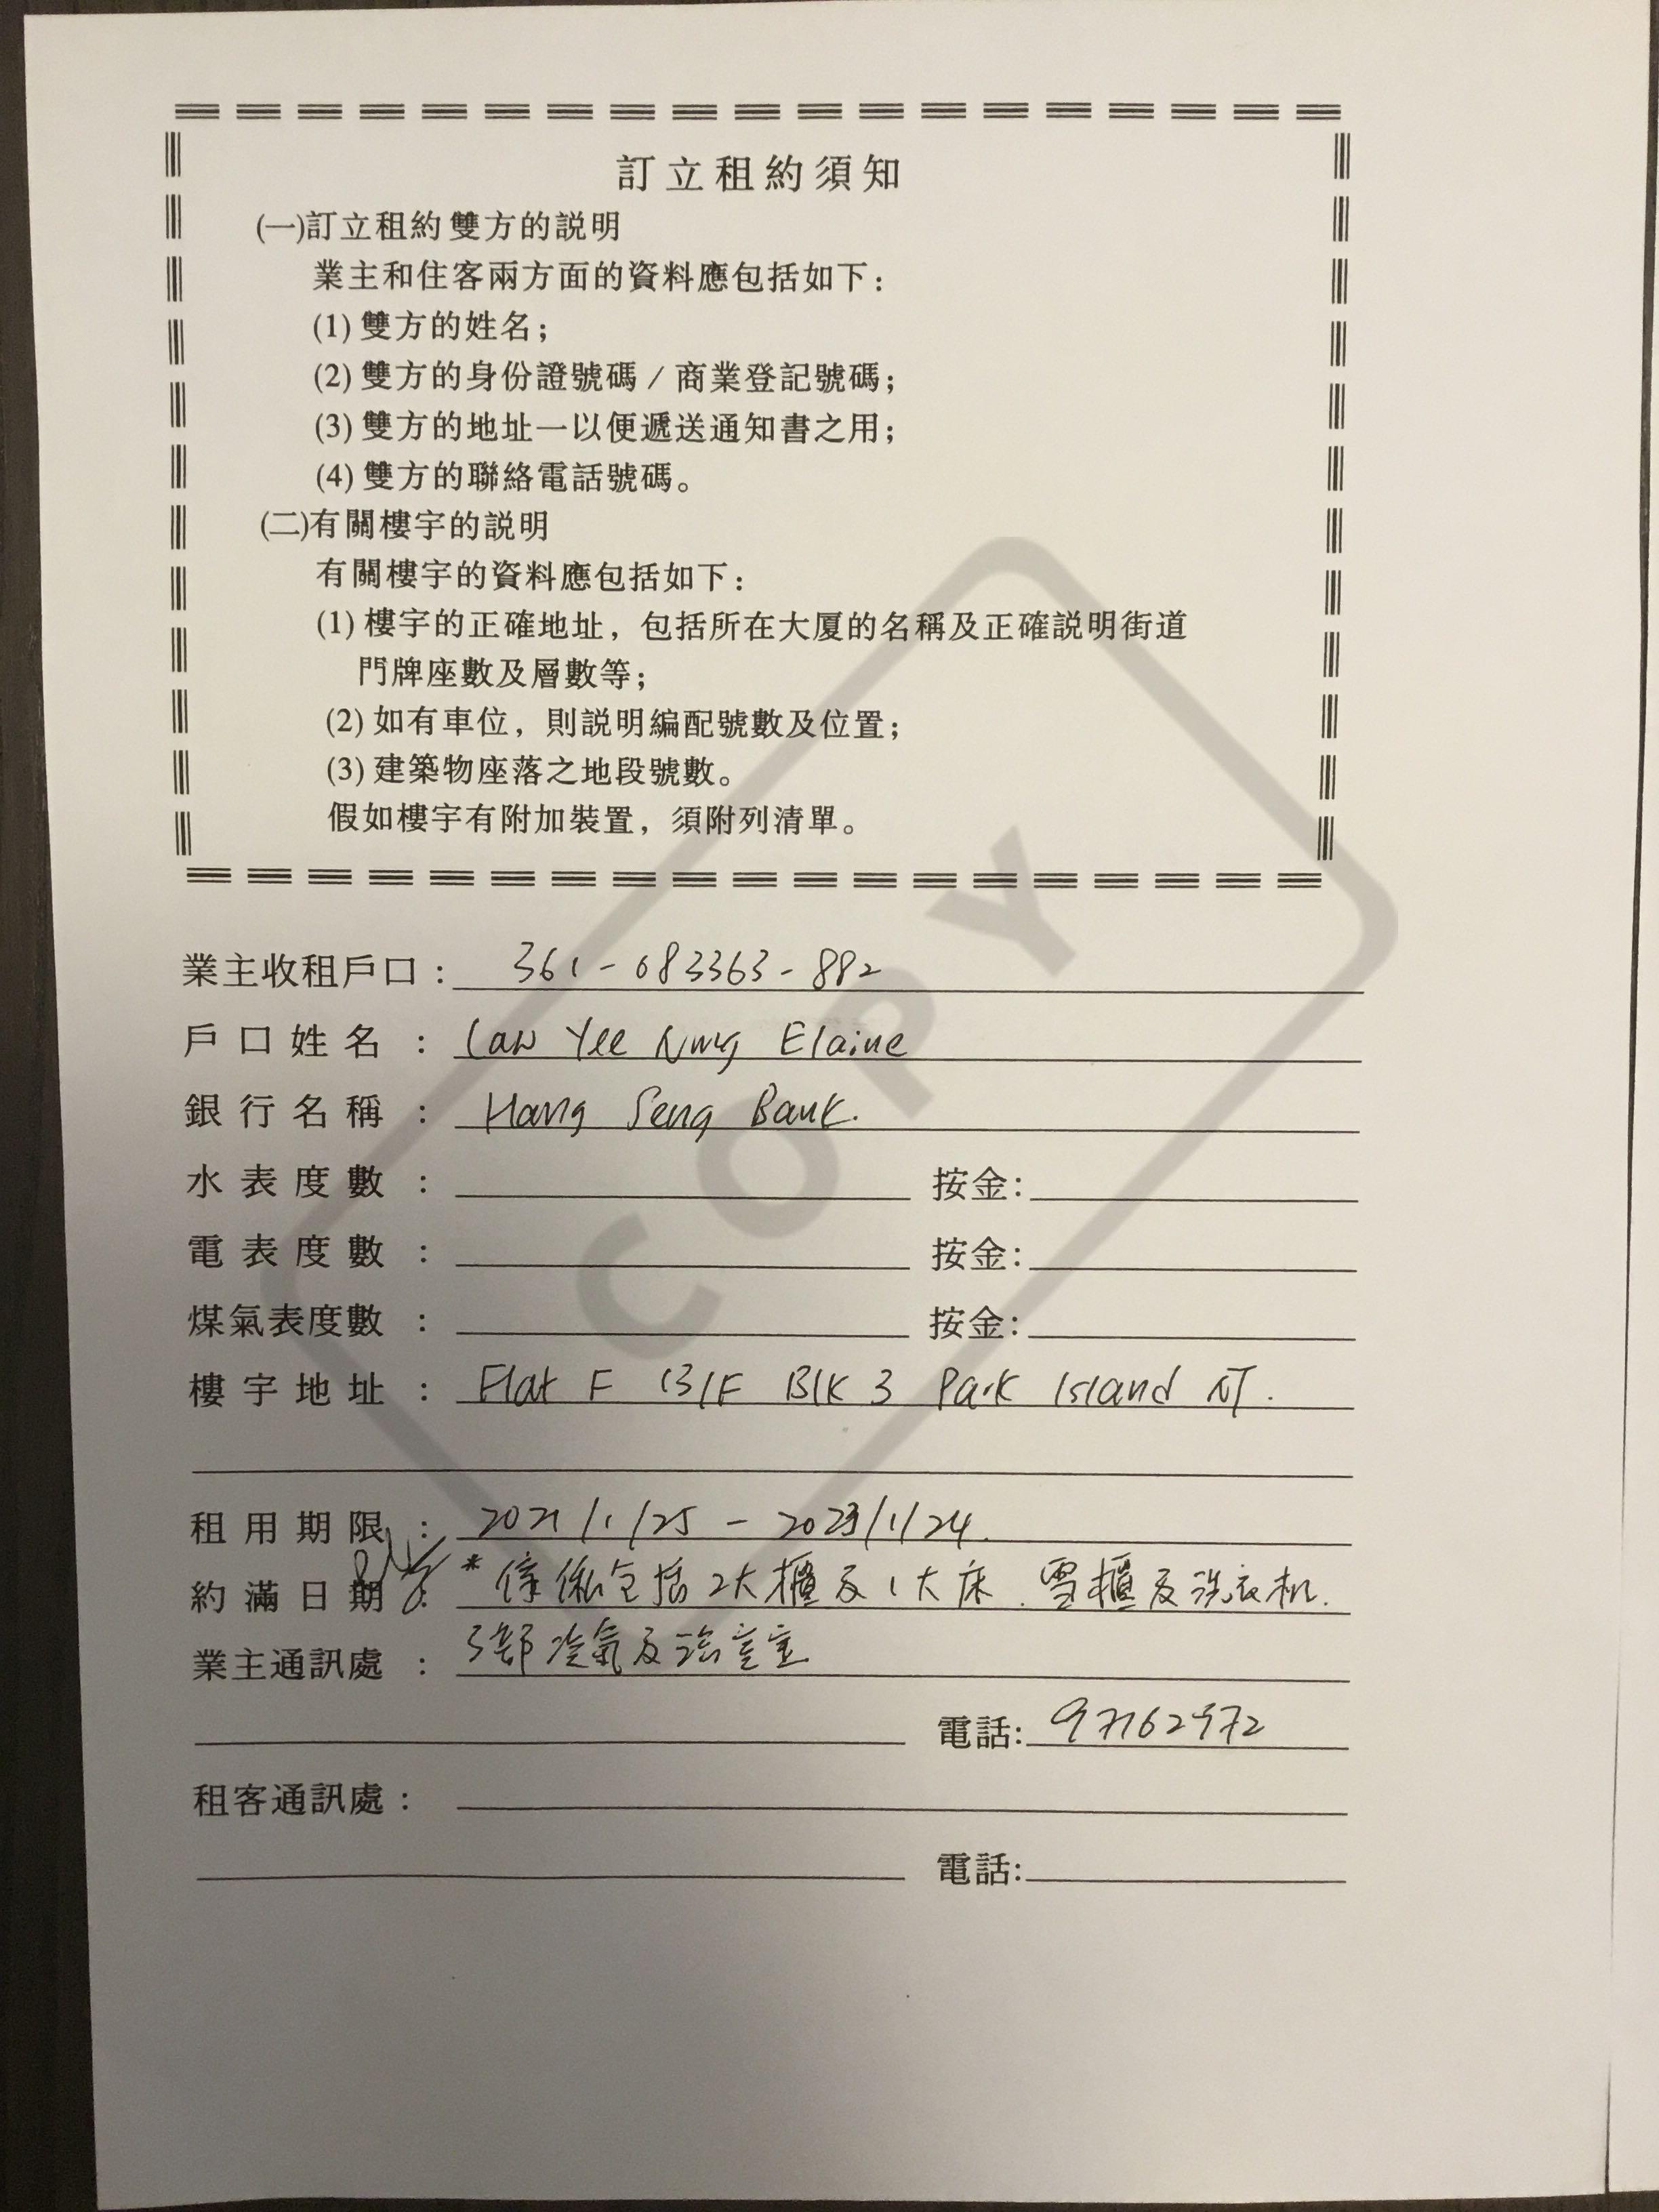 訂立租約須知
(一)訂立租約雙方的説明
業主和住客兩方面的資料應包括如下：
(1) 雙方的姓名；
(2) 雙方的身份證號碼 / 商業登記號碼；
(3) 雙方的地址一以便遞送通知書之用；
(4) 雙方的聯絡電話號碼。
(二)有關樓宇的説明
有關樓宇的資料應包括如下：
(1) 樓宇的正確地址，包括所在大厦的名稱及正確説明街道
門牌座數及層數等；
(2) 如有車位，則説明編配號數及位置；
(3) 建築物座落之地段號數。
假如樓宇有附加裝置，須附列清單。
COPY
業主收租戶口： 361-083363-882
戶口姓名： Law Yee Elaine
銀行名稱： Hang Seng Bank.
水表度數： 按金：
電表度數： 按金：
煤氣表度數： 按金：
樓宇地址： Flat F 13/F Blk 3 Park Island NT.
租用期限： 2021/1/25 - 2023/1/24.
約滿日期： *傢俬包括2大櫃及1大床.雪櫃及洗衣机.
業主通訊處： 3部冷氣及
電話： 97162972
租客通訊處：
電話：